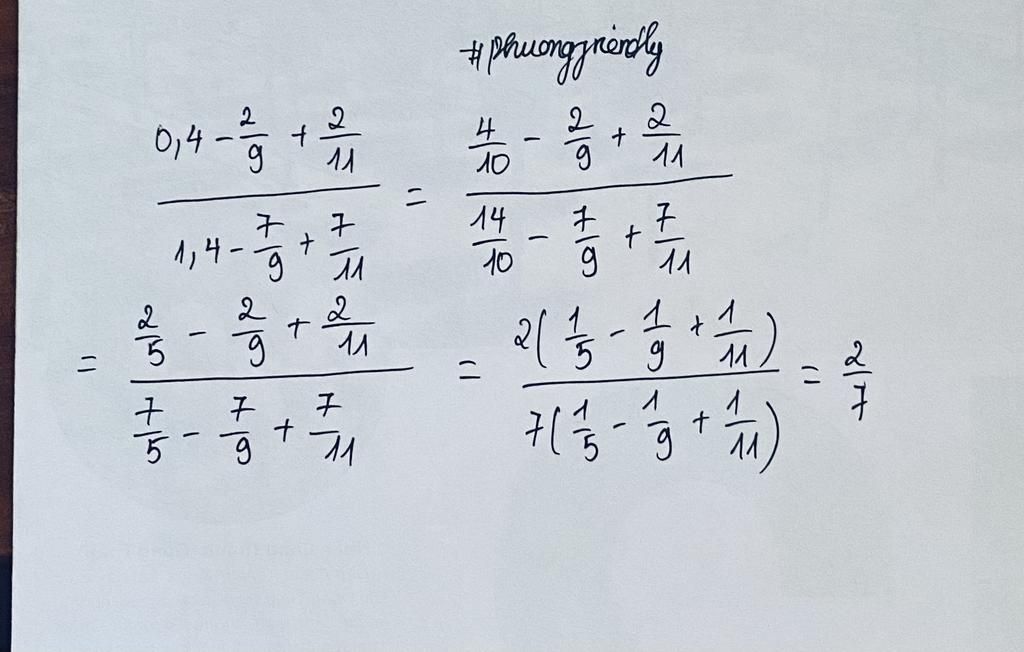 #phuongfriendly
\frac{0,4 - \frac{2}{9} + \frac{2}{11}}{1,4 - \frac{7}{9} + \frac{7}{11}} = \frac{\frac{4}{10} - \frac{2}{9} + \frac{2}{11}}{\frac{14}{10} - \frac{7}{9} + \frac{7}{11}}
= \frac{\frac{2}{5} - \frac{2}{9} + \frac{2}{11}}{\frac{7}{5} - \frac{7}{9} + \frac{7}{11}} = \frac{2(\frac{1}{5} - \frac{1}{9} + \frac{1}{11})}{7(\frac{1}{5} - \frac{1}{9} + \frac{1}{11})} = \frac{2}{7}